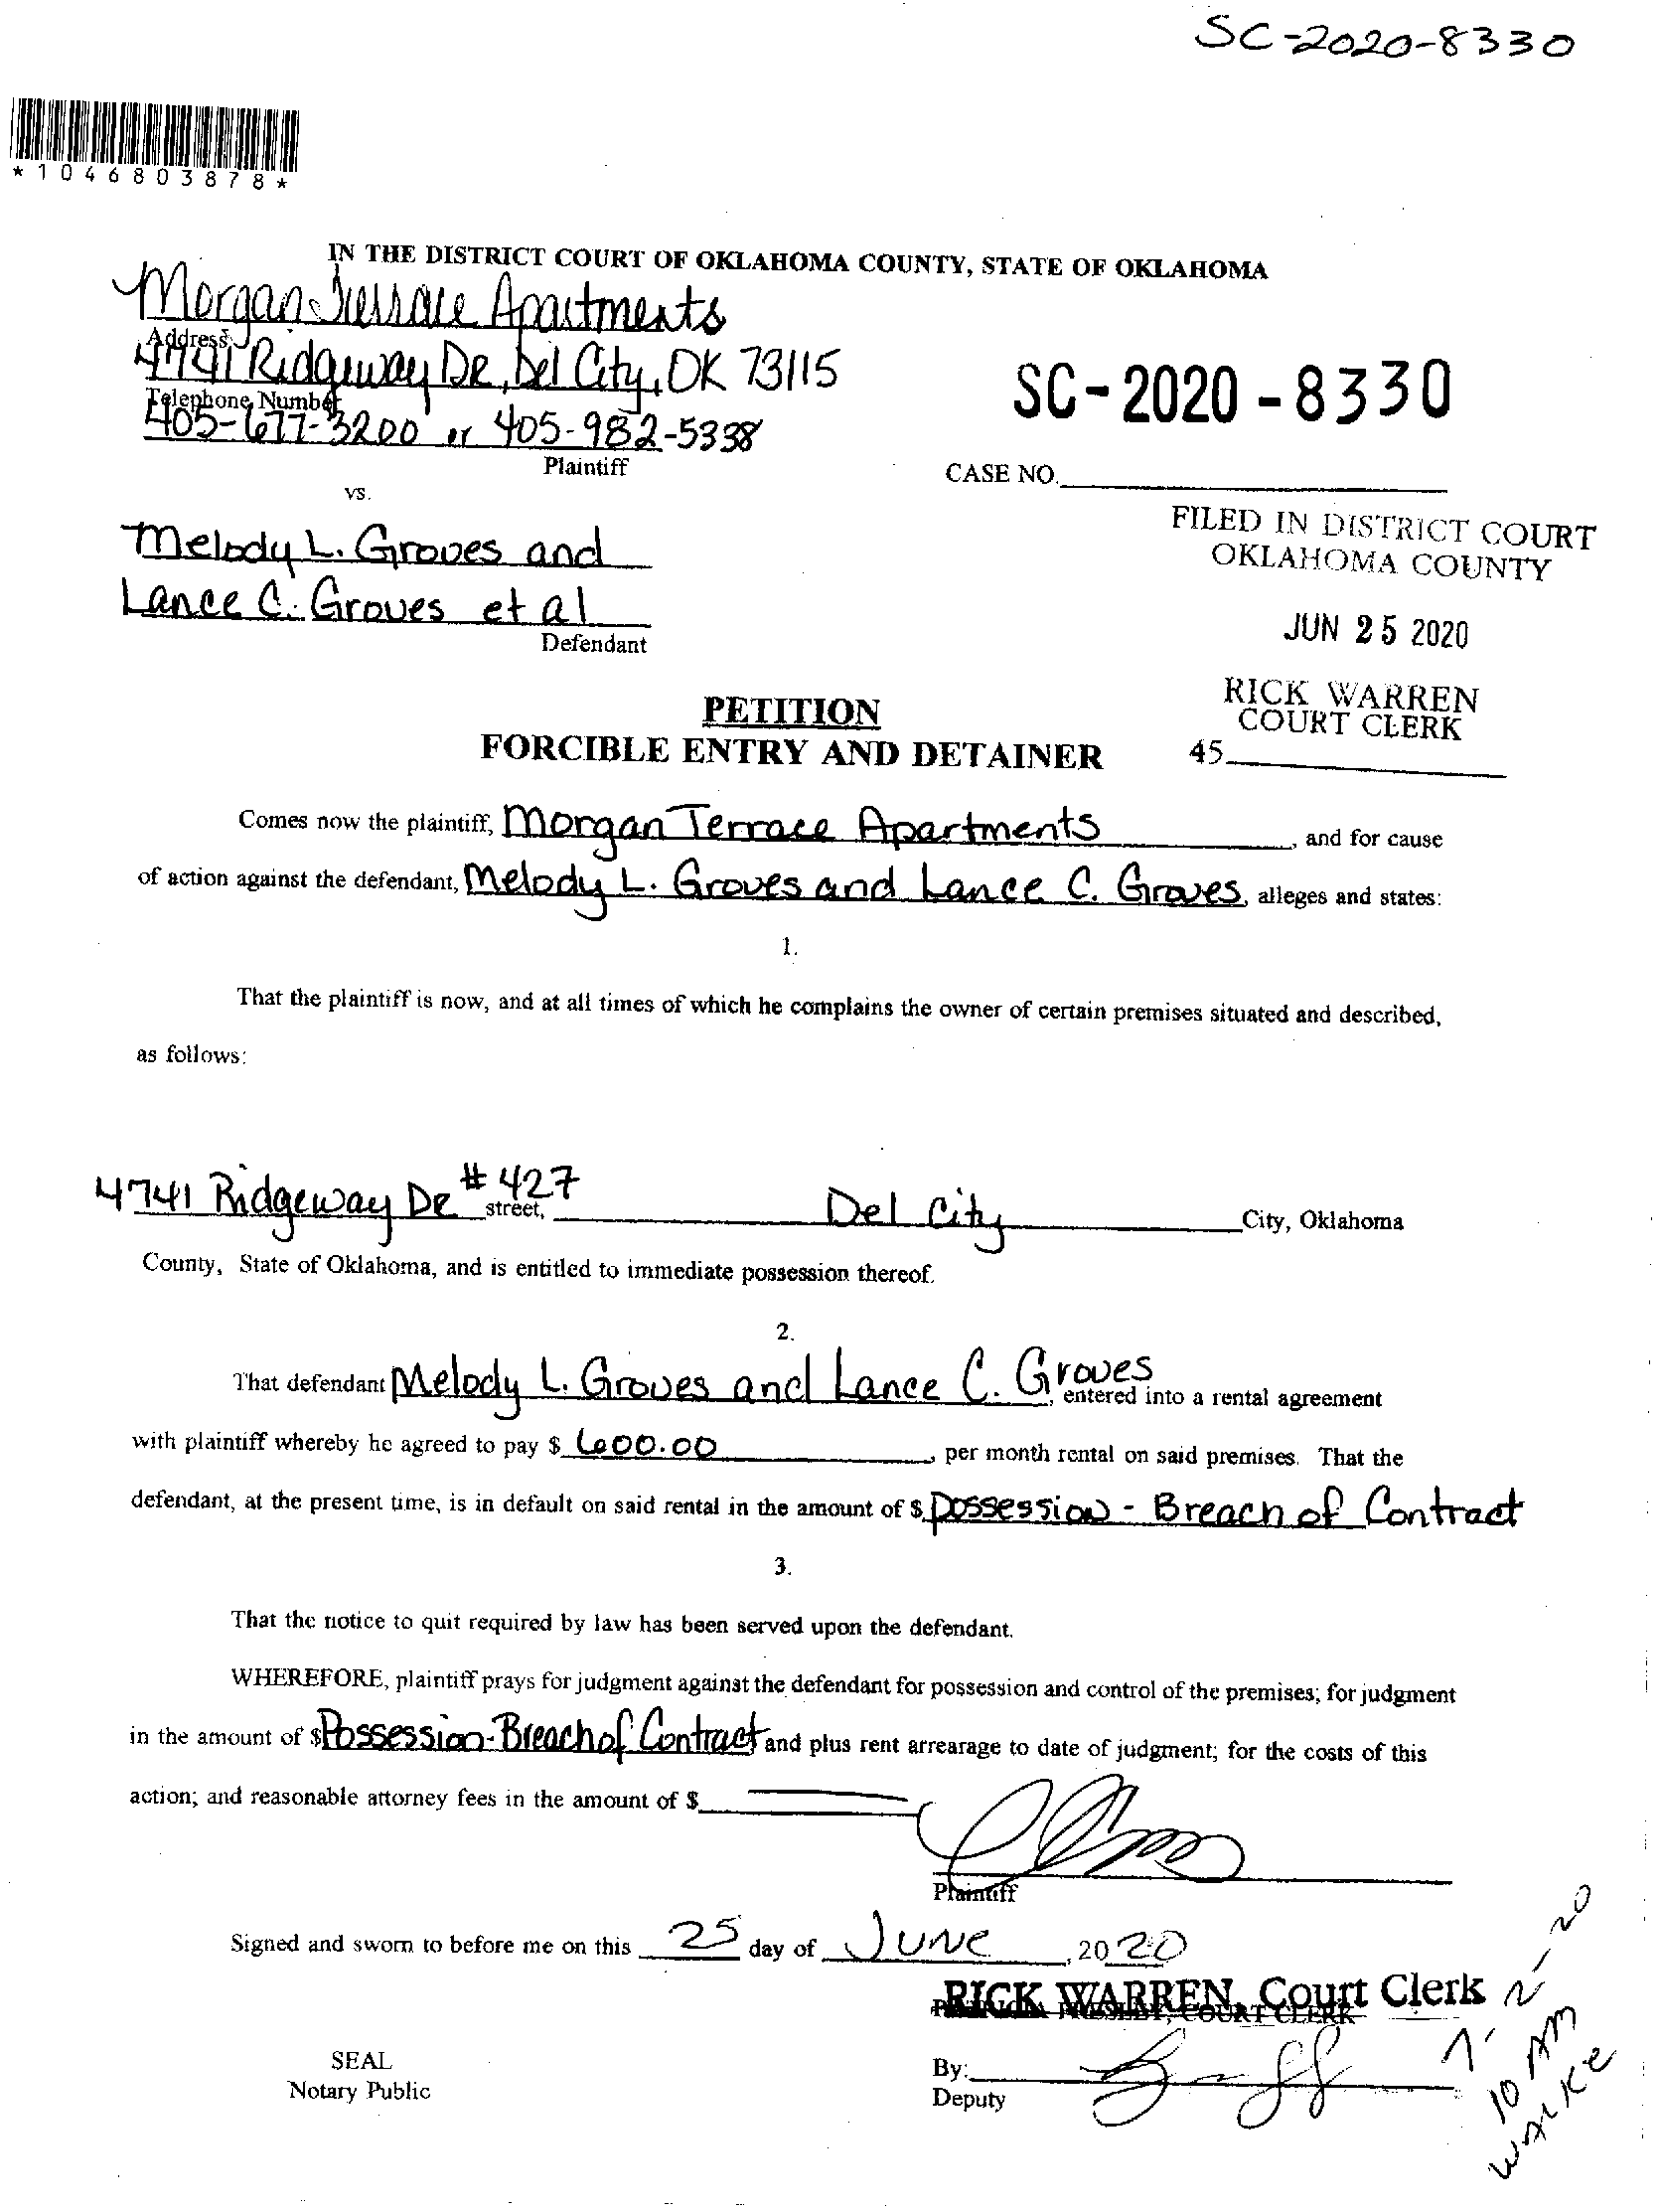 SC-2020-8330
*1046803878*
IN THE DISTRICT COURT OF OKLAHOMA COUNTY, STATE OF OKLAHOMA
Morgan Terrace Apartments
Address
4741 Ridgeway DR, Del City, OK 73115
Telephone Number
405-677-3200 or 405-982-5338
Plaintiff
SC-2020-8330
CASE NO.
vs.
Melody L. Groves and
Lance C. Groves et al
Defendant
FILED IN DISTRICT COURT
OKLAHOMA COUNTY
JUN 25 2020
RICK WARREN
COURT CLERK
45
PETITION
FORCIBLE ENTRY AND DETAINER
Comes now the plaintiff, Morgan Terrace Apartments, and for cause
of action against the defendant, Melody L. Groves and Lance C. Groves, alleges and states:
1.
That the plaintiff is now, and at all times of which he complains the owner of certain premises situated and described,
as follows:
4741 Ridgeway DR #427 street, Del City City, Oklahoma
County, State of Oklahoma, and is entitled to immediate possession thereof.
2.
That defendant Melody L. Groves and Lance C. Groves, entered into a rental agreement
with plaintiff whereby he agreed to pay $ 600.00, per month rental on said premises. That the
defendant, at the present time, is in default on said rental in the amount of $ possession - Breach of Contract
3.
That the notice to quit required by law has been served upon the defendant.
WHEREFORE, plaintiff prays for judgment against the defendant for possession and control of the premises; for judgment
in the amount of $ Possession-Breach of Contract and plus rent arrearage to date of judgment; for the costs of this
action; and reasonable attorney fees in the amount of $
Plaintiff
Signed and sworn to before me on this 25 day of JUNE, 2020
RICK WARREN, Court Clerk
COURT CLERK
SEAL
Notary Public
By:
Deputy
7-2-20
10 AM
WALKE